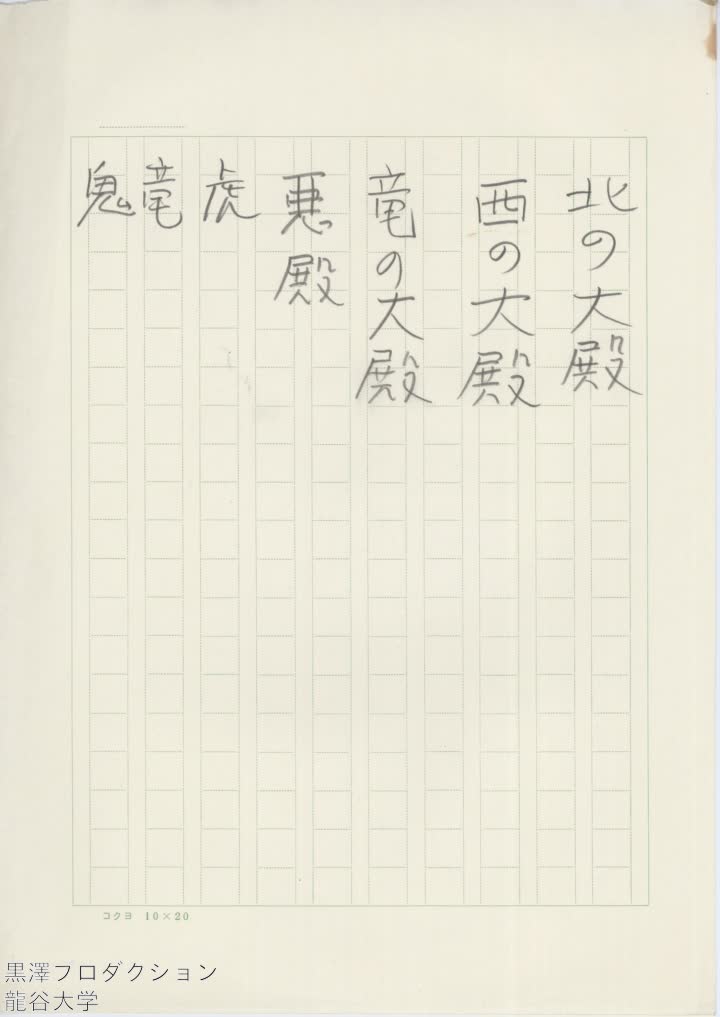 北の大殿
西の大殿
竜の大殿
悪殿
虎
竜
鬼
コクヨ 10×20
黒澤フロダクション
龍谷大学